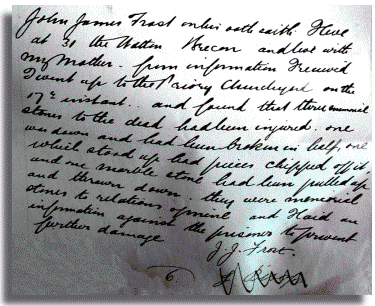 John James Frost on his oath saith: I live
at 30 the Watton Brecon and live with
my Mother. from information I received
I went up to the Priory Churchyard on the
17th instant. and found that three memorial
stones to the dead had been injured. one
was down and had been broken in half, one
which stood up had pieces chipped off it
and one marble stone had been pulled up
and thrown down. they were memorial
stones to relations of mine and I laid an
information against the prisoner to prevent
further damage
J. J. Frost.
6